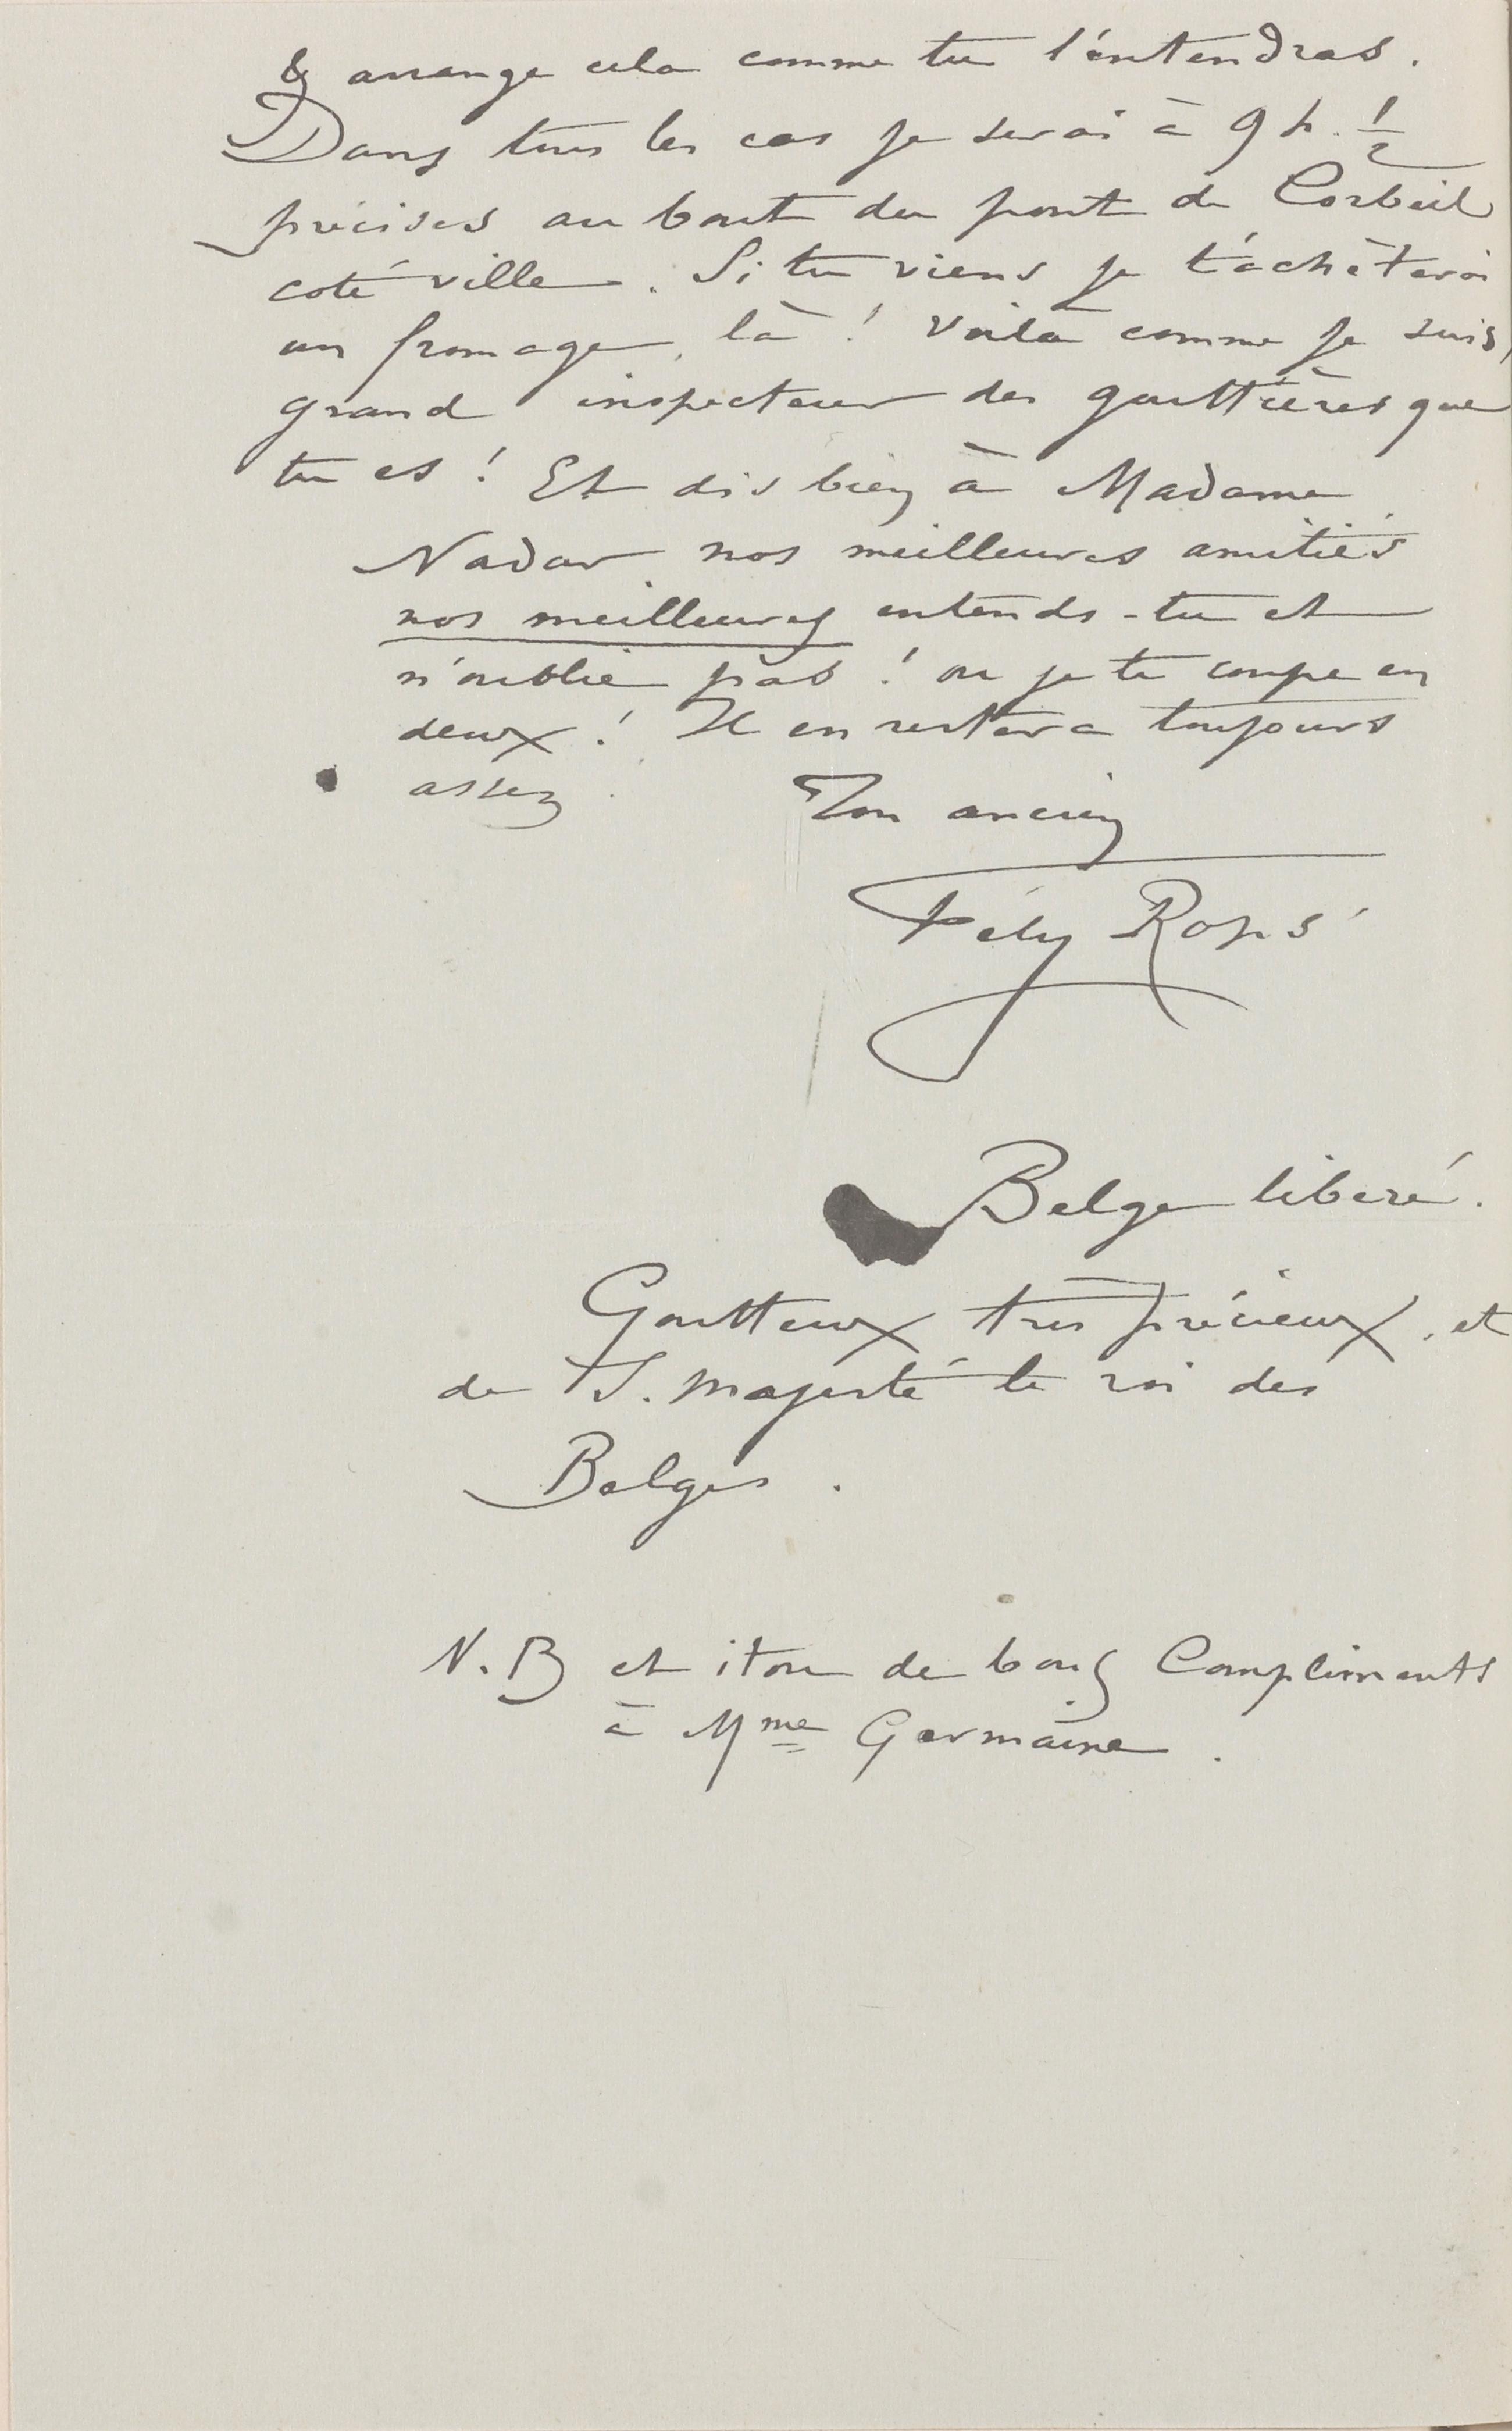 & arrange cela comme tu l'entendras.
Dans tous les cas je serai à 9 h. 1/2
précises au bout du pont de Corbeil
coté ville. Si tu viens je t'achèterai
un fromage, là ! Voilà comme je suis,
grand inspecteur des gouttières que
tu es ! Et dis bien à Madame
Nadar nos meilleures amitiés
nos meilleures entends-tu et
n'oublie pas ! ou je te coupe en
deux ! Il en restera toujours
assez.
Ton ancien
Fély Rops
Belge libéré.
Goutteux très précieux, et
de S. Majesté le roi des
Belges.
N.B et itou de bons Compliments
à Mme Germaine.